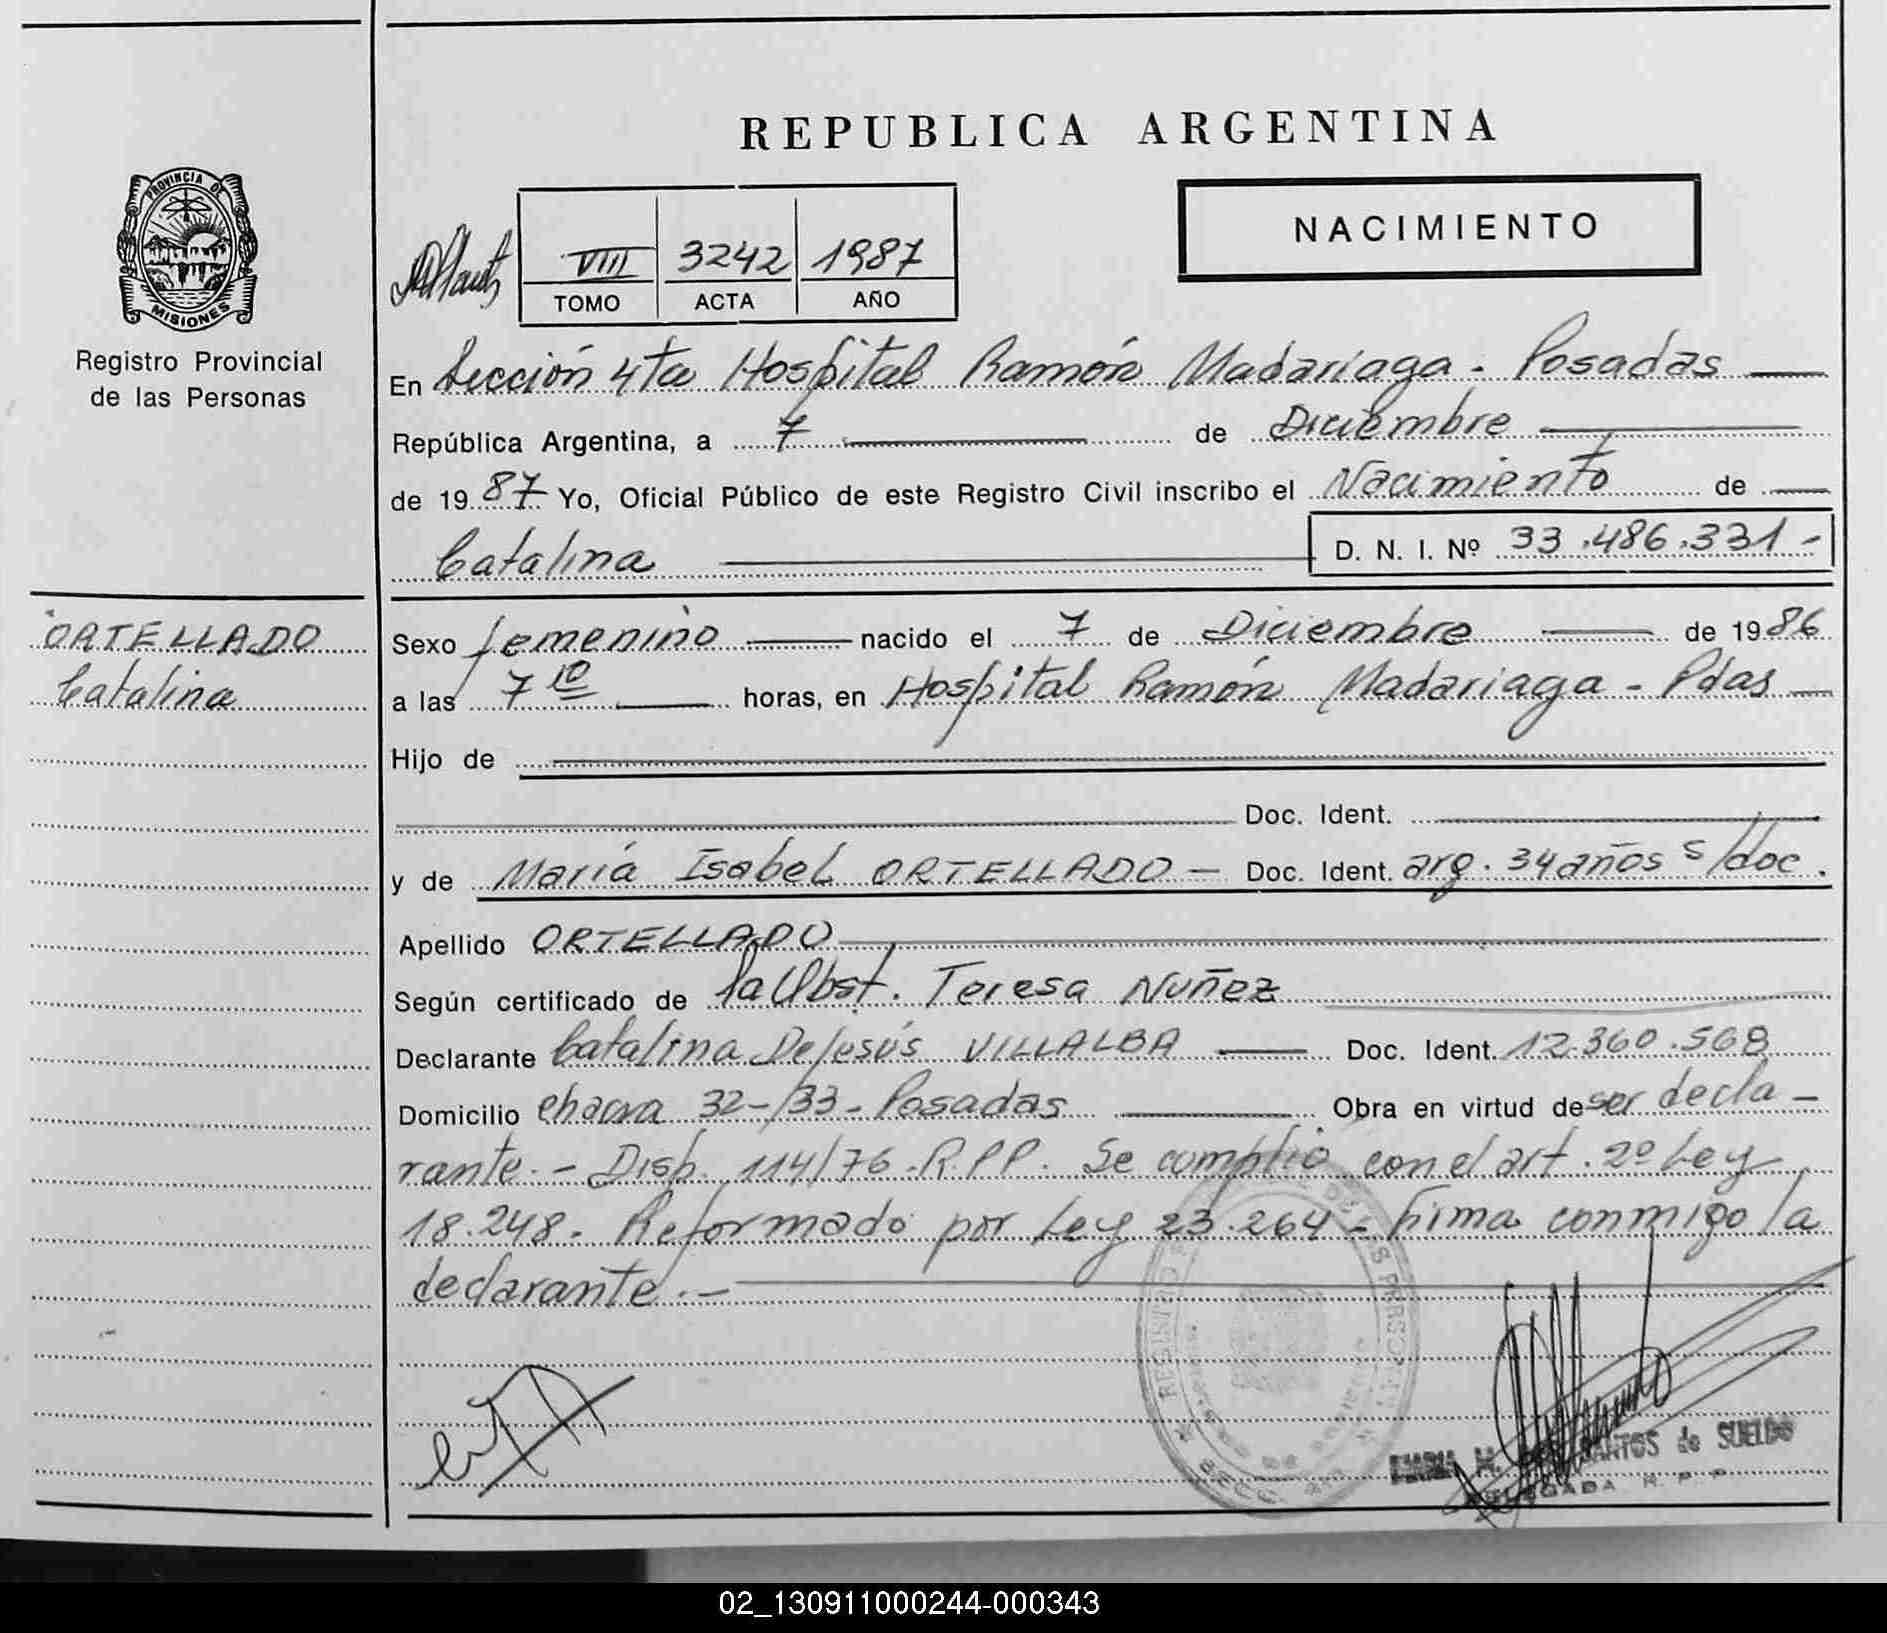 REPUBLICA ARGENTINA
PROVINCIA DE
MISIONES
Registro Provincial
de las Personas
VIII 3242 1987
TOMO ACTA AÑO
NACIMIENTO
En Sección 4ta Hospital Ramón Madariaga - Posadas
República Argentina, a 7 de Diciembre
de 1987 Yo, Oficial Público de este Registro Civil inscribo el Nacimiento de
Catalina D. N. I. Nº 33.486.331-
ORTELLADO
Catalina
Sexo femenino nacido el 7 de Diciembre de 1986
a las 7 10 horas, en Hospital Ramón Madariaga - Pdas
Hijo de
Doc. Ident.
y de María Isabel ORTELLADO - Doc. Ident. arg. 34 años s/doc.
Apellido ORTELLADO
Según certificado de la Obst. Teresa Nuñez
Declarante Catalina De Jesús VILLALBA Doc. Ident. 12.360.568
Domicilio chacra 32-/33- Posadas Obra en virtud de ser decla-
rante.- Disp. 114/76.R.P.P. Se cumplió con el art. 2º Ley
18.248. Reformado por Ley 23.264 - Firma conmigo la
declarante.-
SANTOS de SUELDO
DELEGADA R. P. P.
02_130911000244-000343